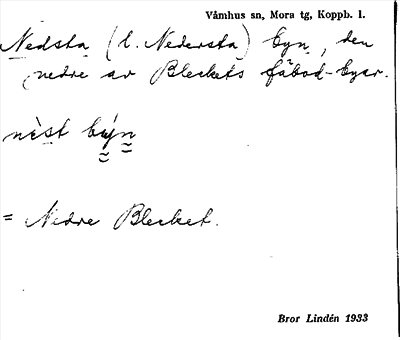 Våmhus sn, Mora tg, Koppb. l.
Nedsta (l. Nedersta) byn, den
nedre av Bleckets fäbod-byar.
nèst býn
= Nedre Blecket.
Bror Lindén 1933